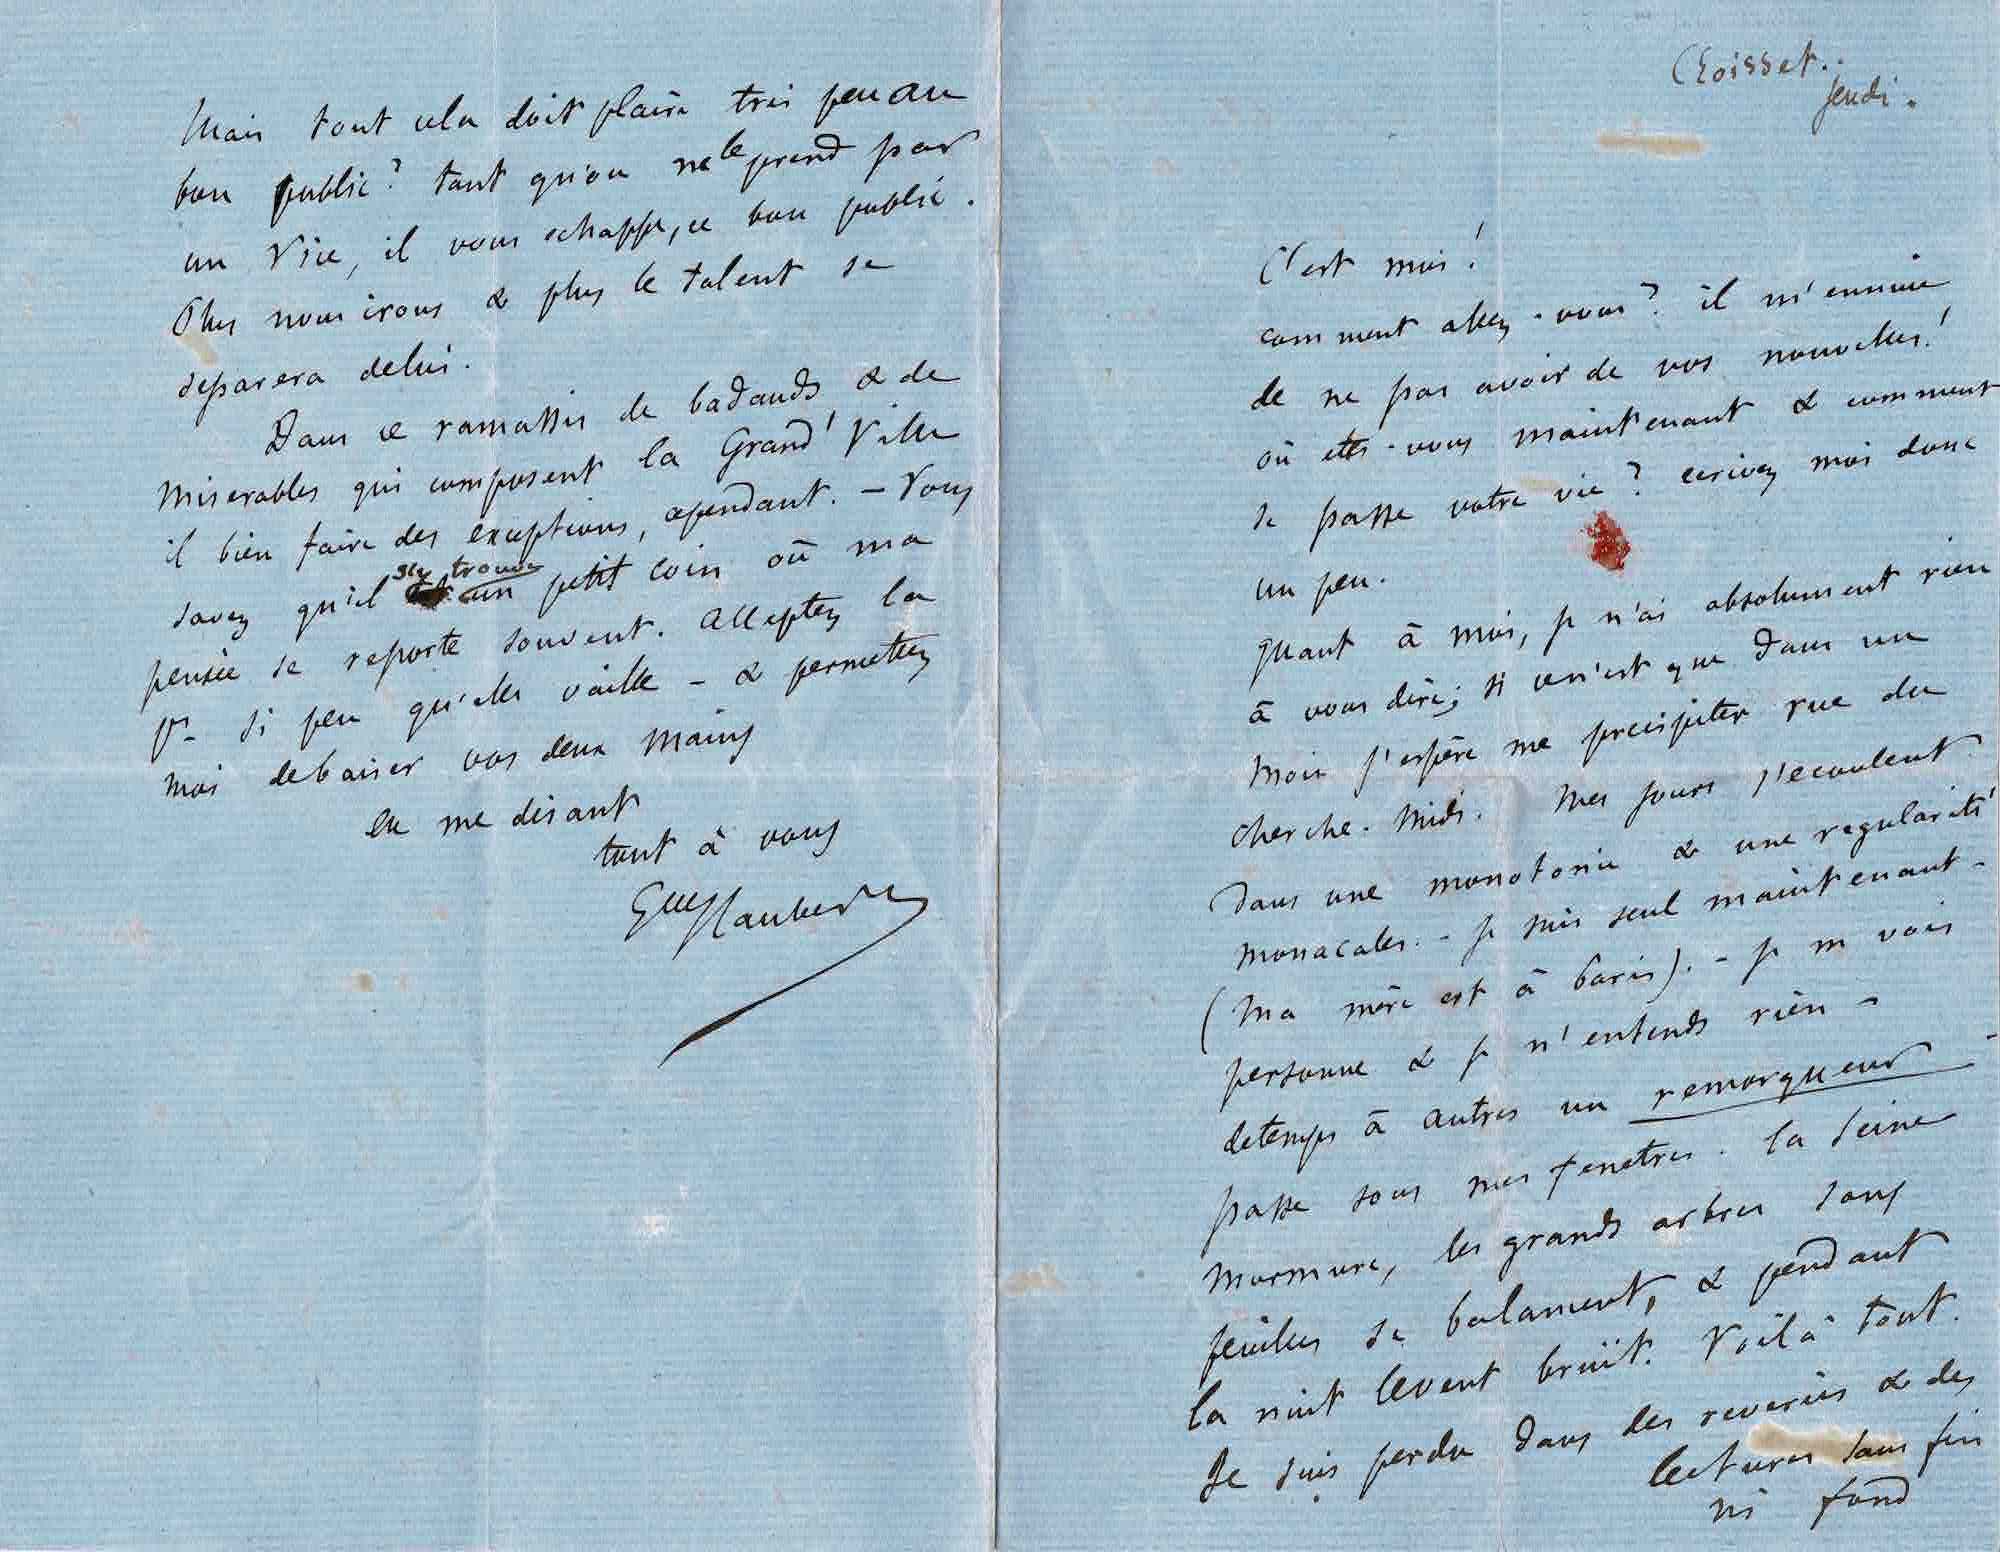 Croisset.
Jeudi.
C'est moi!
comment allez-vous? il m'ennuie
de ne pas avoir de vos nouvelles!
où êtes-vous maintenant & comment
se passe votre vie? ecrivez moi donc
un peu.
quant à moi, je n'ai absolument rien
à vous dire; si ce n'est que dans un
mois j'espère me precipiter rue du
cherche-Midi. Mes jours s'ecoulent
dans une monotonie & une regularité
monacales. - je suis seul maintenant -
(ma mère est à Paris). - je ne vois
personne & je n'entends rien -
de temps à autres un remorqueur -
passe sous mes fenetres. la Seine
murmure, les grands arbres sans
feuilles se balancent, & pendant
la nuit le vent bruit. Voilà tout.
Je suis perdu dans des reveries & des
lectures sans fin
ni fond
Mais tout cela doit plaire très peu au
bon public? tant qu'on ne le prend par
un vice, il vous echappe, ce bon public.
Plus nous irons & plus le talent se
separera de lui.
Dans ce ramassis de badauds & de
miserables qui composent la Grand' Ville
il bien faire des exceptions, cependant. - Vous
savez qu'il s'y trouve un petit coin où ma
pensée se reporte souvent. Acceptez la
pr si peu qu'elle vaille - & permettez
moi de baiser vos deux mains
en me disant
tout à vous
Gve Flaubert